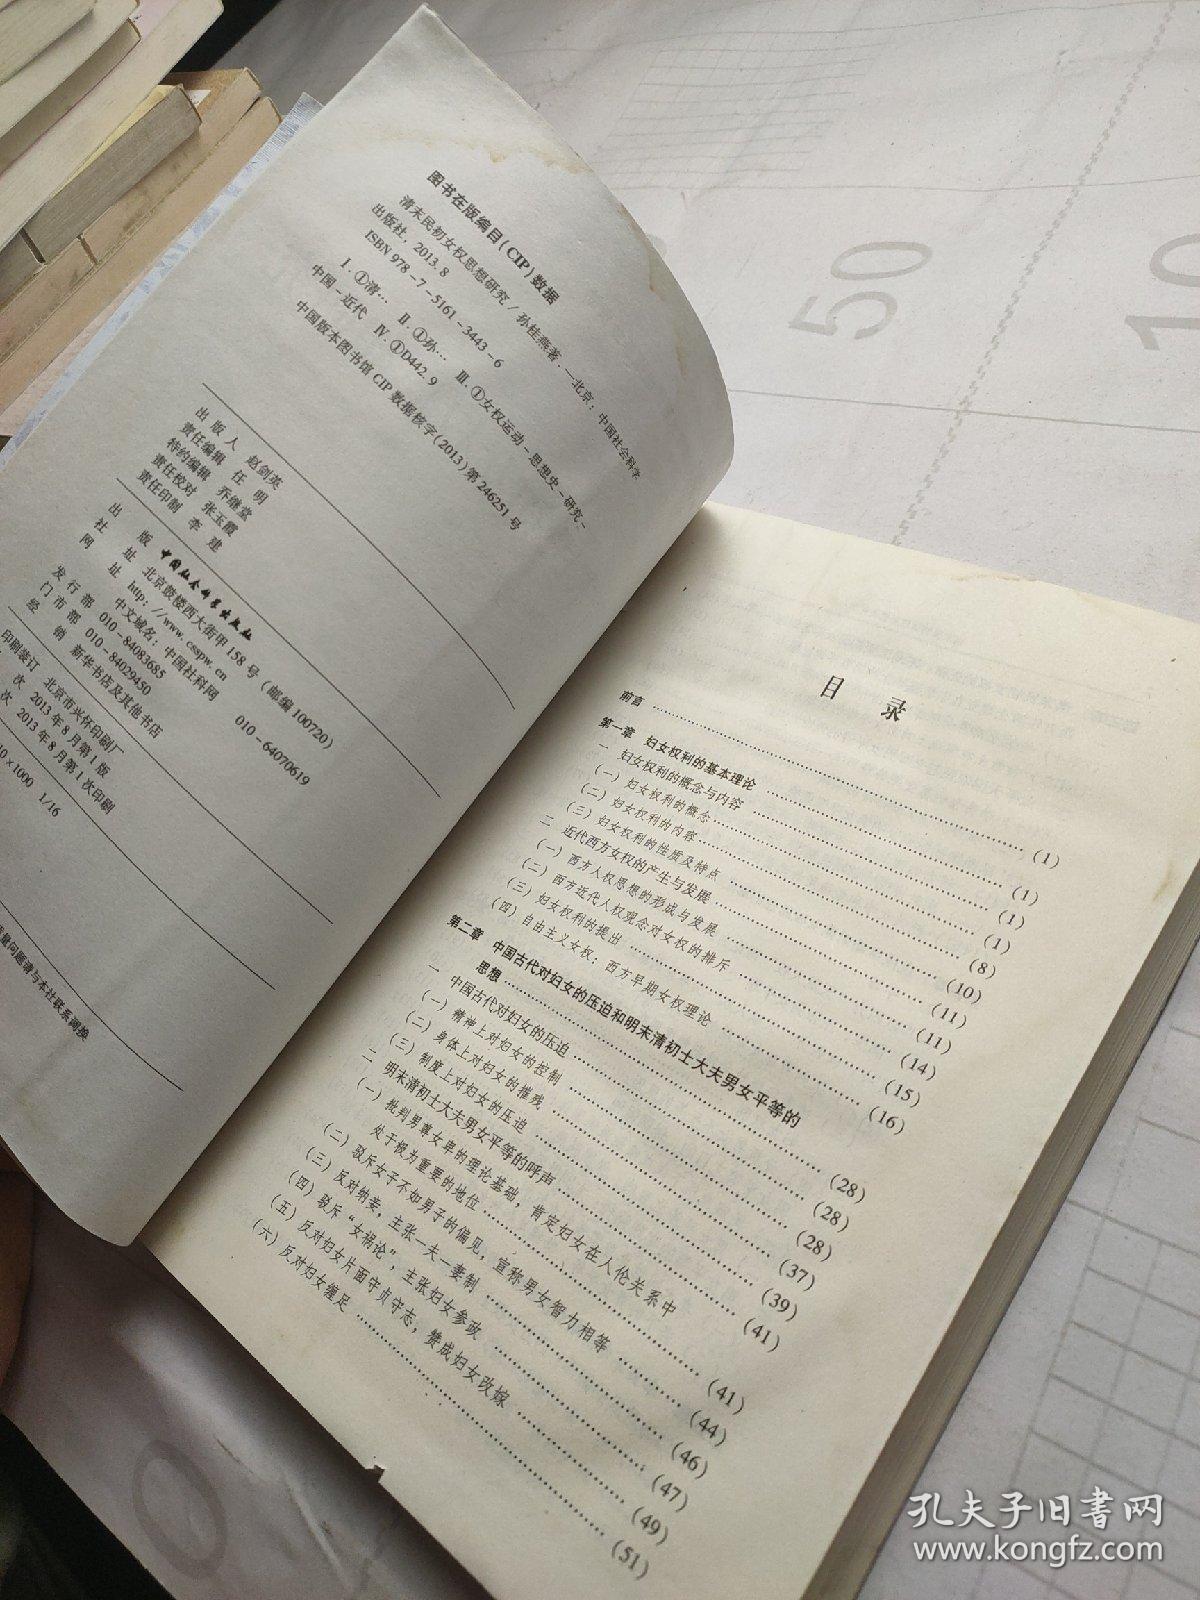 图书在版编目(CIP)数据
清末民初女权思想研究/孙桂燕著.—北京:中国社会科学
出版社,2013.8
ISBN 978-7-5161-3443-6
Ⅰ.①清… Ⅱ.①孙… Ⅲ.①女权运动-思想史-研究-
中国-近代 Ⅳ.①D442.9
中国版本图书馆CIP数据核字(2013)第246251号
出版人 赵剑英
责任编辑 任 明
特约编辑 乔继堂
责任校对 张玉霞
责任印制 李 建
出 版 中国社会科学出版社
社 址 北京鼓楼西大街甲158号(邮编100720)
网 址 http://www.csspw.cn
中文域名:中国社科网 010-64070619
发行部 010-84083685
门市部 010-84029450
经 销 新华书店及其他书店
印刷装订 北京市兴怀印刷厂
次 2013年8月第1版
次 2013年8月第1次印刷
0×1000 1/16
量问题请与本社联系调换
目 录
前言 (1)
第一章 妇女权利的基本理论 (1)
一 妇女权利的概念与内容 (1)
(一)妇女权利的概念 (1)
(二)妇女权利的内容 (8)
(三)妇女权利的性质及特点 (10)
二 近代西方女权的产生与发展 (11)
(一)西方人权思想的形成与发展 (11)
(二)西方近代人权观念对女权的排斥 (14)
(三)妇女权利的提出 (15)
(四)自由主义女权:西方早期女权理论 (16)
第二章 中国古代对妇女的压迫和明末清初士大夫男女平等的
思想 (28)
一 中国古代对妇女的压迫 (28)
(一)精神上对妇女的控制 (28)
(二)身体上对妇女的摧残 (37)
(三)制度上对妇女的压迫 (39)
二 明末清初士大夫男女平等的呼声 (41)
(一)批判男尊女卑的理论基础,肯定妇女在人伦关系中
处于极为重要的地位 (41)
(二)驳斥女子不如男子的偏见,宣称男女智力相等 (44)
(三)反对纳妾,主张一夫一妻制 (46)
(四)驳斥“女祸论”,主张妇女参政 (47)
(五)反对妇女片面守贞守志,赞成妇女改嫁 (49)
(六)反对妇女缠足 (51)
50
10
0
孔夫子旧书网
www.kongfz.com